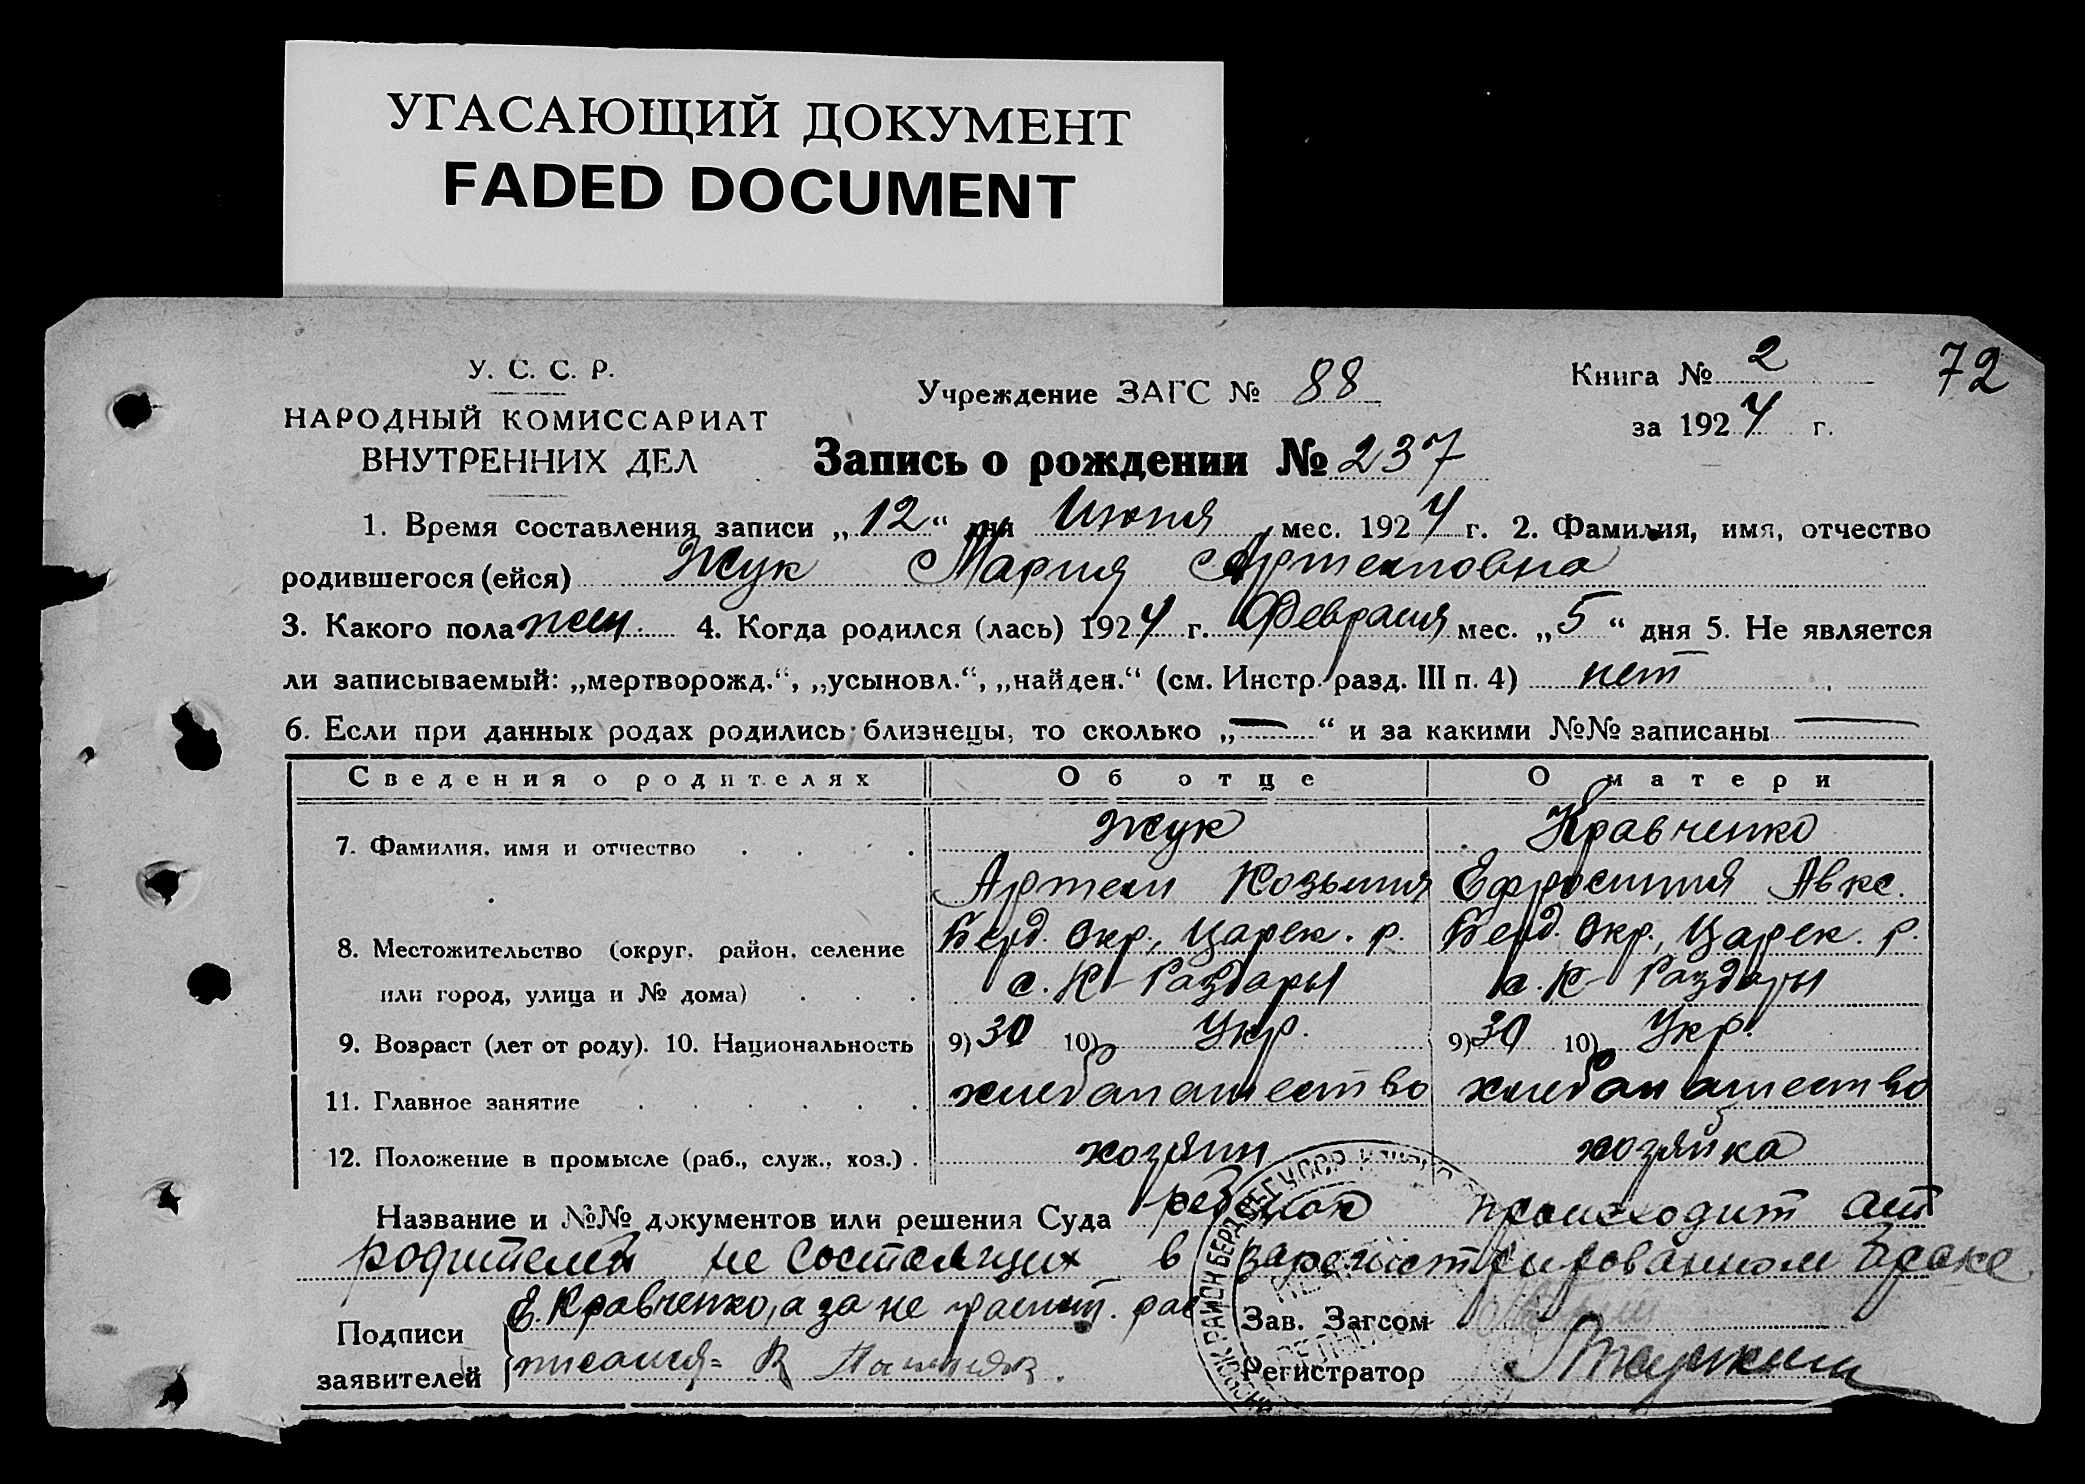 УГАСАЮЩИЙ ДОКУМЕНТ
FADED DOCUMENT
У. С. С. Р.
НАРОДНЫЙ КОМИССАРИАТ
ВНУТРЕННИХ ДЕЛ
Учреждение ЗАГС № 88
Книга № 2
за 1924 г.
72
Запись о рождении № 237
1. Время составления записи „12“ дня Июня мес. 1924 г. 2. Фамилия, имя, отчество
родившегося (ейся) Жук Мария Артемповна
3. Какого пола жен. 4. Когда родился (лась) 1924 г. Февраля мес. „5“ дня 5. Не является
ли записываемый: „мертворожд.“, „усыновл.“, „найден.“ (см. Инстр. разд. III п. 4) нет
6. Если при данных родах родились близнецы, то сколько „—“ и за какими №№ записаны —
Сведения о родителях Об отце О матери
7. Фамилия, имя и отчество Жук Кравченко
Артем Козьмия Ефросиния Авкс.
8. Местожительство (округ, район, селение Берд. Окр., Царек. р. Берд. Окр., Царек. р.
или город, улица и № дома) с. К-Раздоры с. К-Раздоры
9. Возраст (лет от роду). 10. Национальность 9) 30 10) Укр. 9) 30 10) Укр.
11. Главное занятие хлебопашество хлебопашество
12. Положение в промысле (раб., служ., хоз.) хозяин хозяйка
Название и №№ документов или решения Суда ребенок происходит от
родителей не состоящих в зарегистрированном браке
Подписи заявителей Е. Кравченко, а за не грамот. рас
писался= В
Зав. Загсом
Регистратор